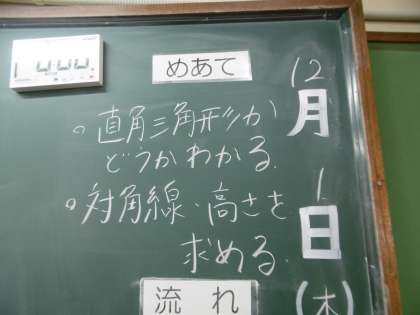 めあて
12月1日(木)
○直角三角形か
どうかわかる.
○対角線・高さを
求める.
流れ